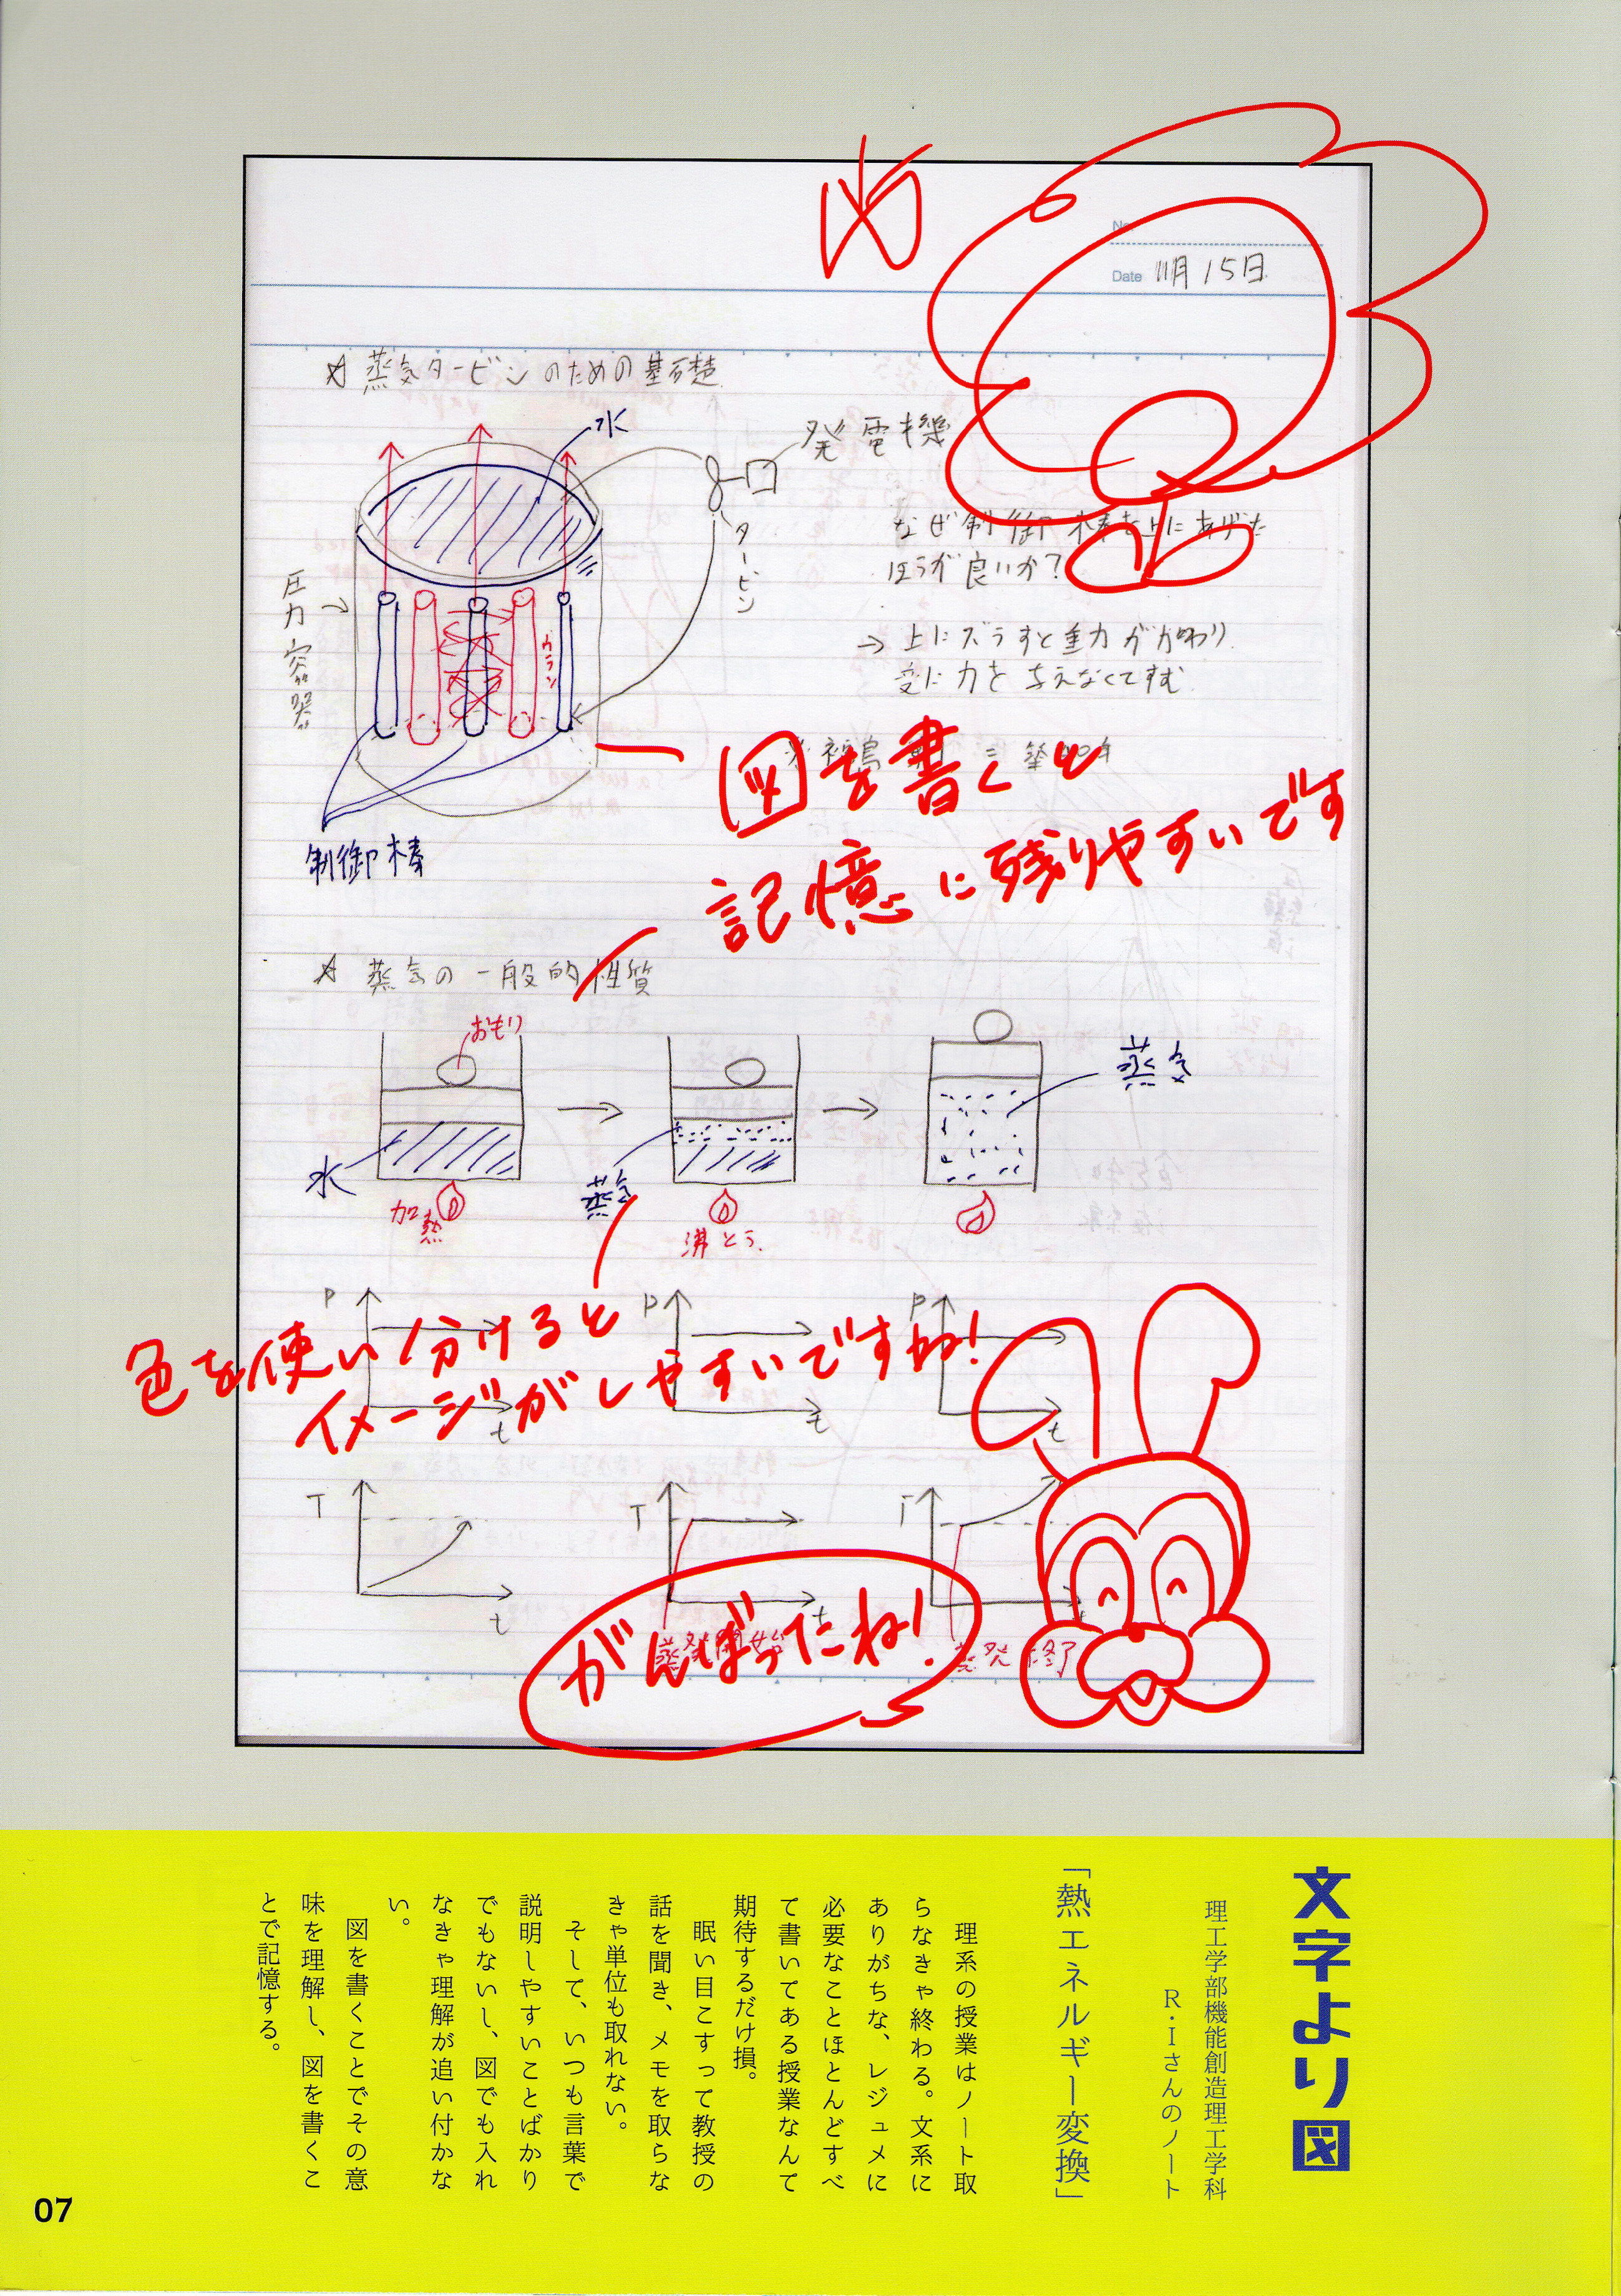 Date 11月15日
☆ 蒸気タービンのための基礎
水
発電機
タービン
圧力容器
ウラン
制御棒
なぜ制御棒を上にあげた
ほうが良いか?
→ 上にズラすと重力がかわり
変に力を与えなくてすむ
図を書くと
記憶に残りやすいです
☆ 蒸気の一般的性質
おもり
水
加熱
蒸気
沸とう
蒸気
色を使い分けると
イメージがしやすいですね!
P
t
P
t
P
t
T
t
T
t
T
蒸発開始
蒸発終了
がんばったね!
文字より図
理工学部機能創造理工学科
R・Iさんのノート
「熱エネルギー変換」
理系の授業はノート取
らなきゃ終わる。文系に
ありがちな、レジュメに
必要なことほとんどすべ
て書いてある授業なんて
期待するだけ損。
眠い目こすって教授の
話を聞き、メモを取らな
きゃ単位も取れない。
そして、いつも言葉で
説明しやすいことばかり
でもないし、図でも入れ
なきゃ理解が追い付かな
い。
図を書くことでその意
味を理解し、図を書くこ
とで記憶する。
07